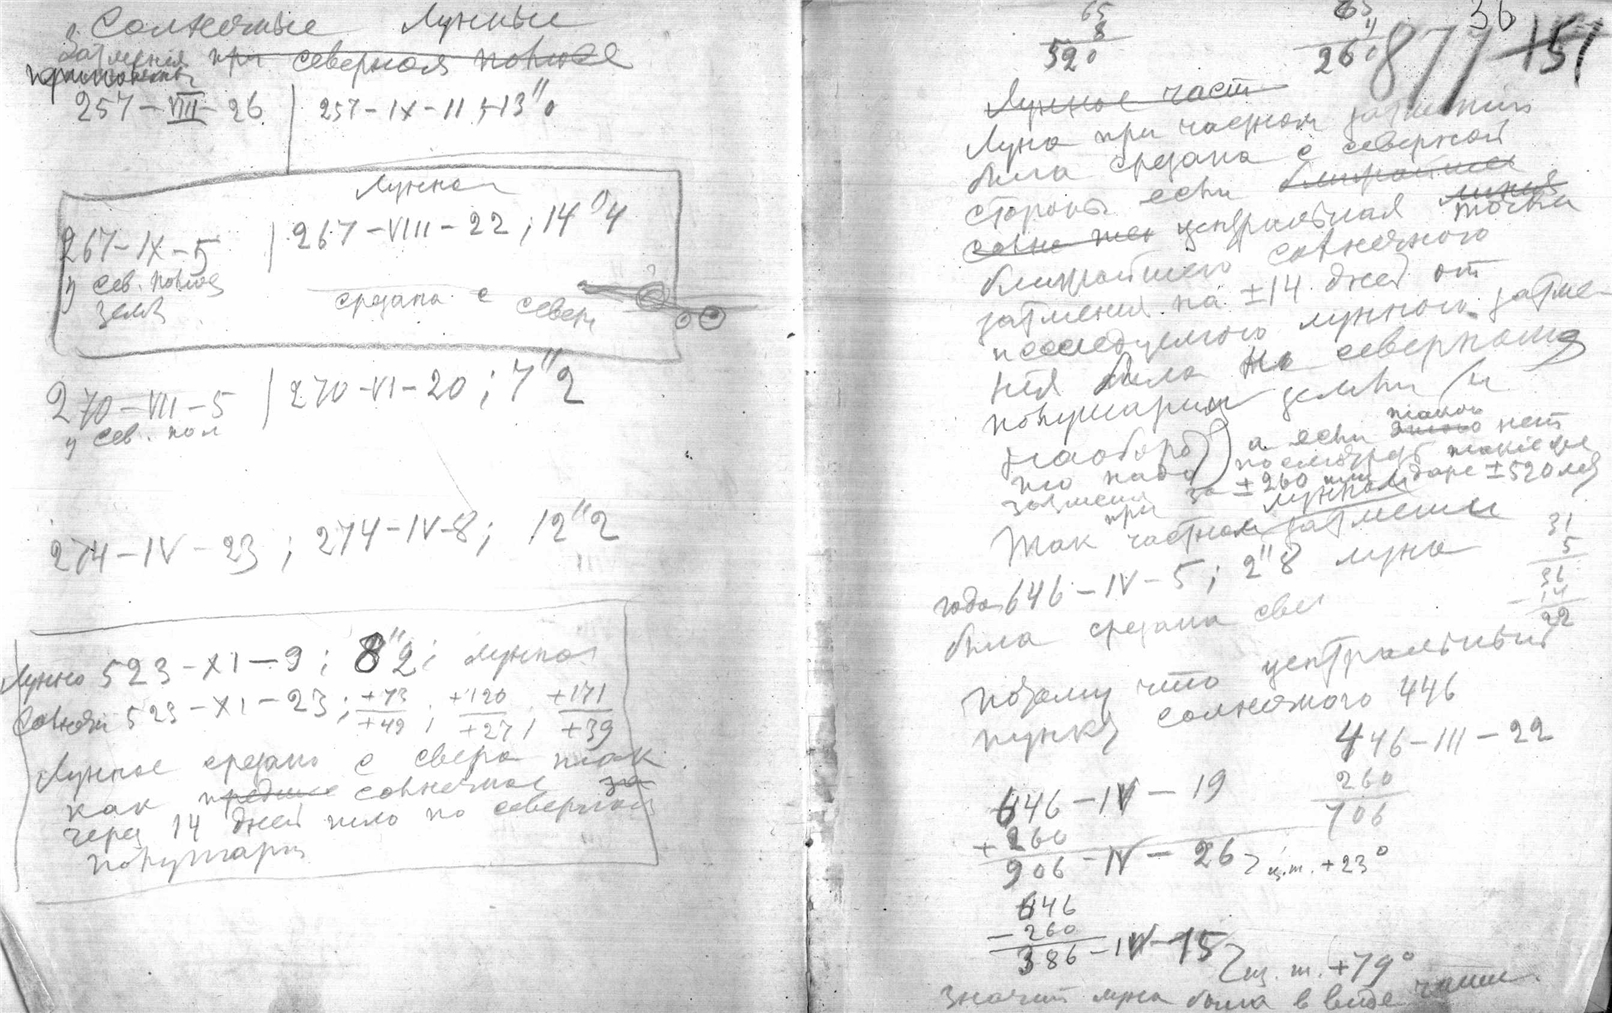 Солнечные Лунные
затмения при северном полюсе
257-VIII-26 | 257-IX-11; 13"0
Лунное
267-IX-5 | 267-VIII-22; 14"4
у сев. полюса
земли
срезана с севера
270-VII-5 | 270-VI-20; 7"2
у сев. пол
274-IV-23; 274-IV-8; 12"2
Лунно 523-XI-9; 8"2; лунное
Солнечн 523-XI-23; +73/+49; +120/+27; +171/+39
Лунное срезано с севера так
как солнечное за
через 14 дней шло по северном
полушари
65
8
520
65
4
260
36
877+51
Лунное част
Луна при частном затмении
была срезана с северной
стороны если ближайшая
центральная линия точка
ближайшего солнечного
затмения на ±14 дней от
исследуемого лунного затме-
ния была на северном
полушарии земли (и
наоборот) а если такого нет
то надо посмотреть такие же
затмения за ±260 или даже ±520 лет
Так при частном лунном затмении
года 646-IV-5; 2"8 луна
была срезана све
31
5
36
-14
22
Потому что центральный
пункт солнечного 446
446-III-22
260
706
646-IV-19
+260
906-IV-26 ц.т. +23°
646
-260
386-IV-15 ц.т. +79°
значит луна была в виде чаши